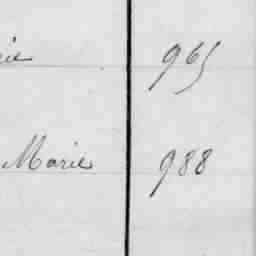 965
Marie 988